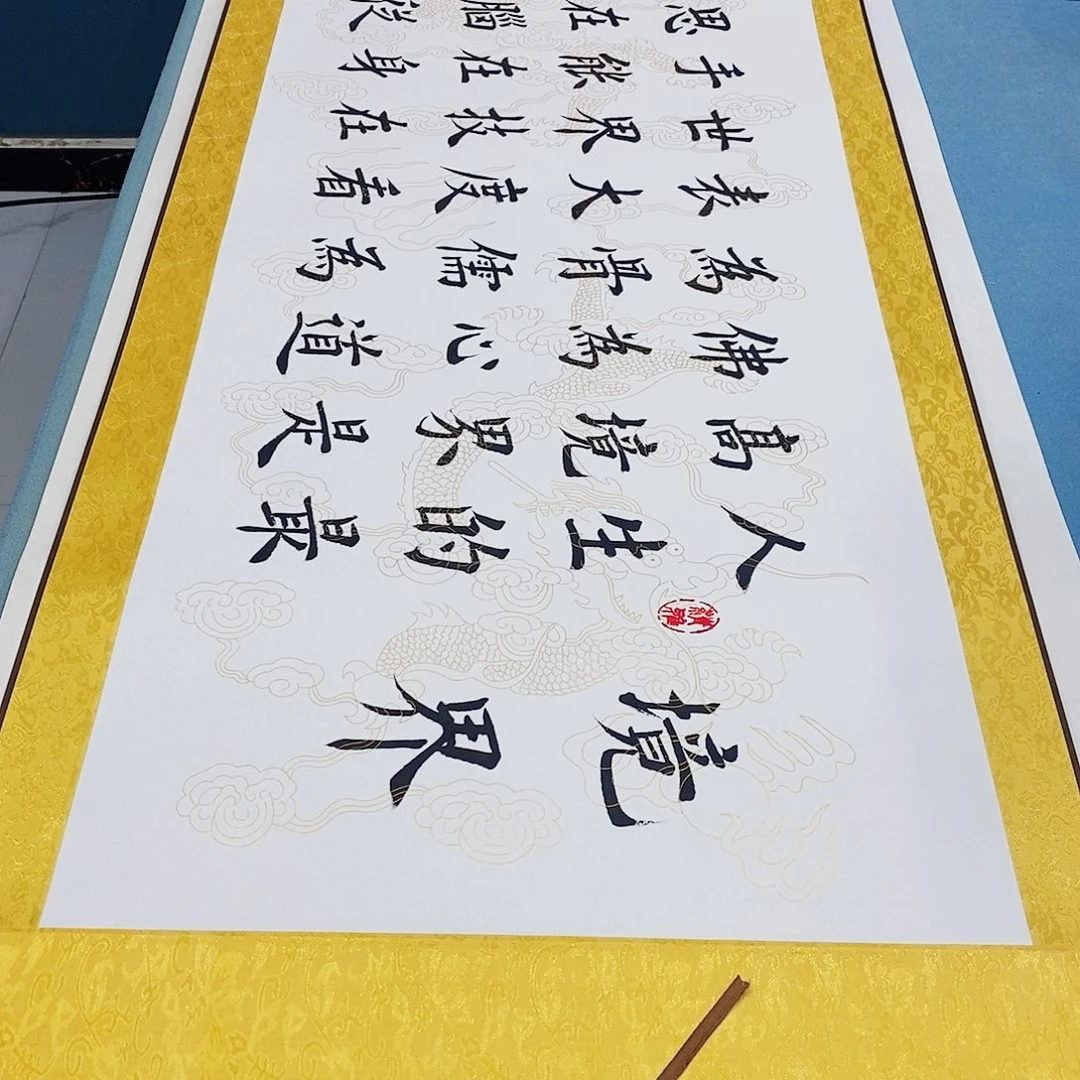 境界
人生的最
高境界是
佛為心道
為骨儒為
表大度看
世界技在
手能在身
思在腦從